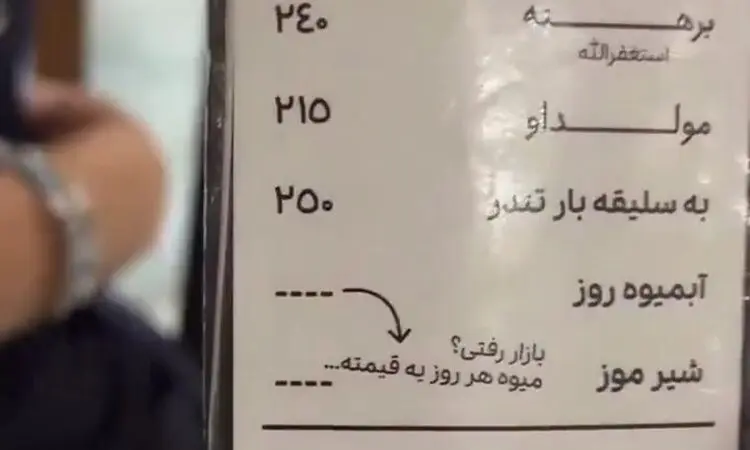 برهـــــــــنه ۲٤۰
استغفرالله
مولـــــــــداو ۲۱۵
به سلیقه بار تندر ۲۵۰
آبمیوه روز ----
بازار رفتی؟
میوه هر روز یه قیمته...
شیر موز ----